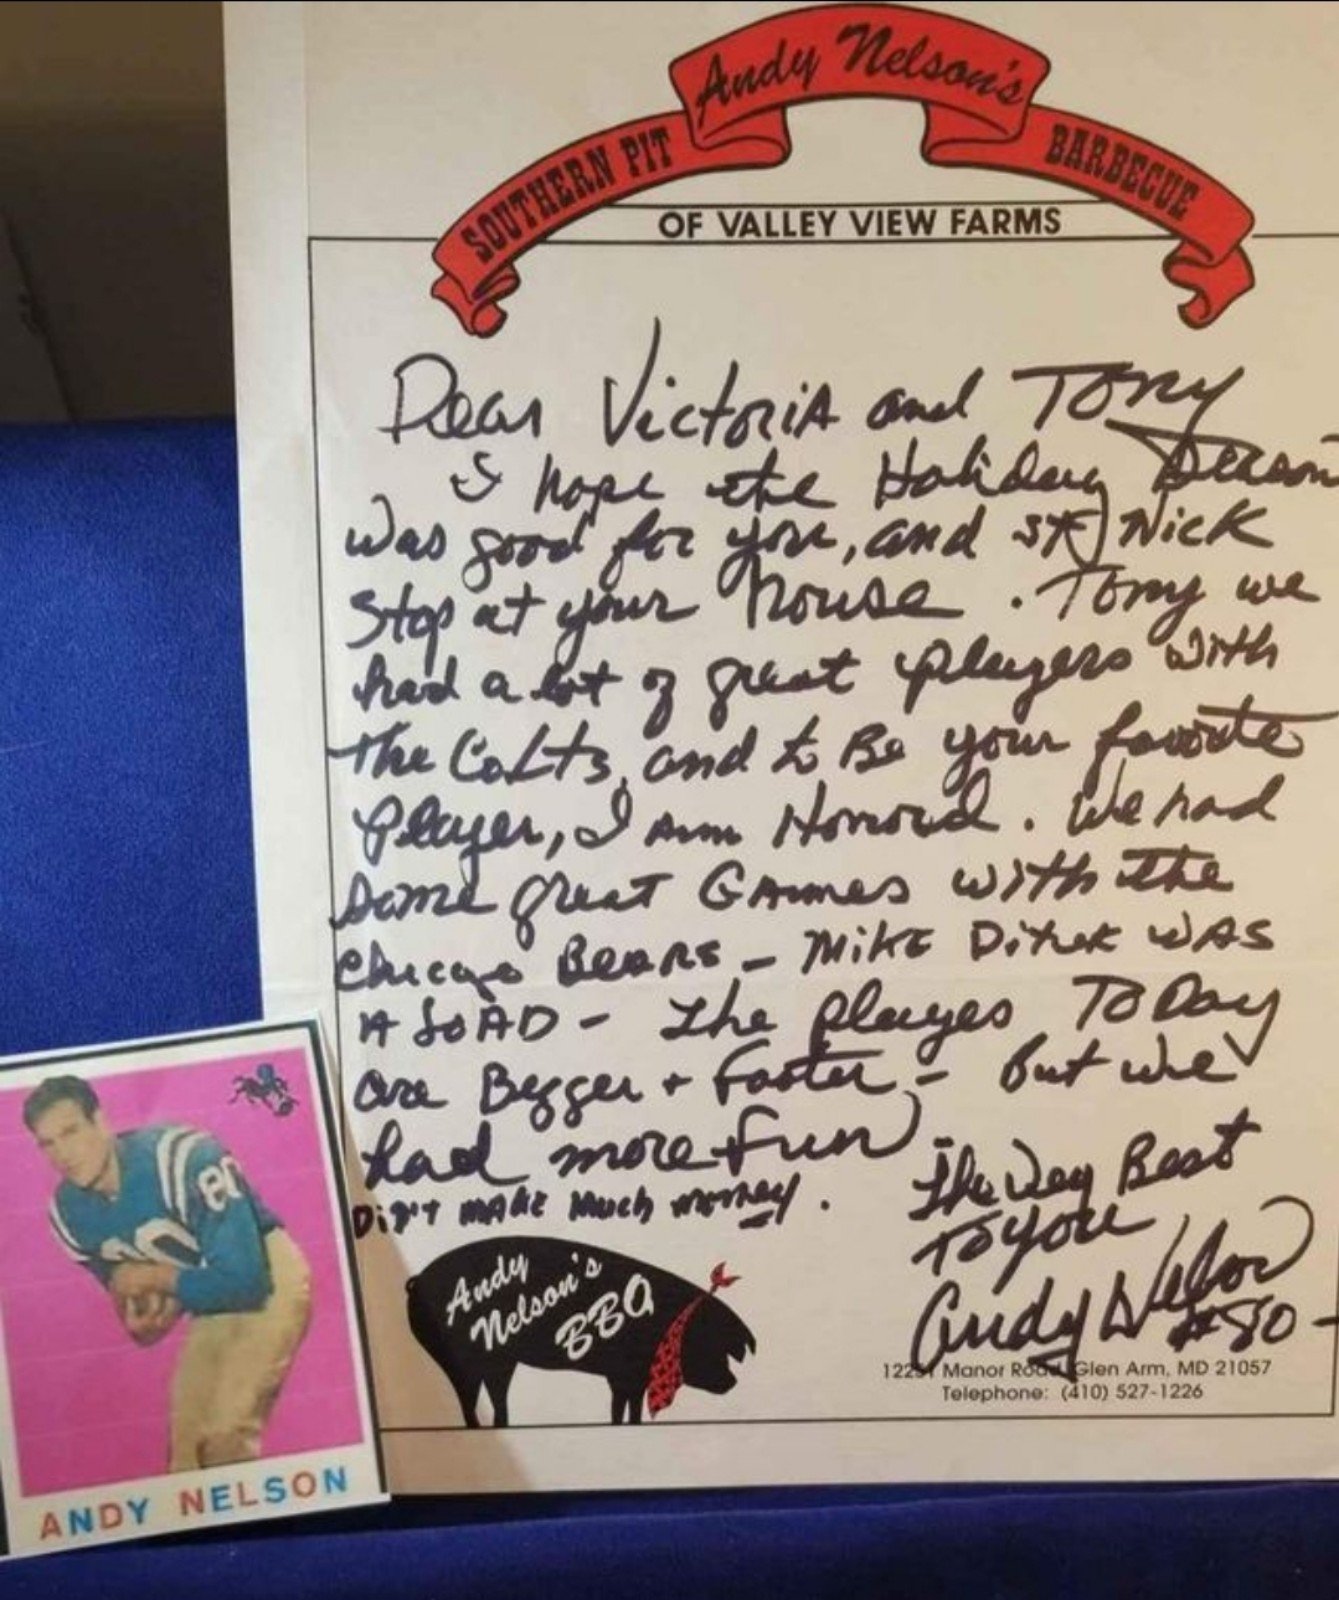 Andy Nelson's
SOUTHERN PIT BARBECUE
OF VALLEY VIEW FARMS
Dear Victoria and Tony
I hope the Holiday Season
was good for you, and St Nick
Stop at your house. Tony we
had a lot of great players with
the Colts, and to Be your favorite
Player, I Am Honored. We had
some great Games with the
Chicago Bears - Mike Ditka WAS
A - The players Today
are Bigger + Faster - But we
had more fun
Didn't MAKE Much money.
The Very Best
To you
Andy Nelson
#80
Andy
Nelson's
BBQ
Manor Road, Glen Arm, MD 21057
Telephone: (410) 527-1226
80
ANDY NELSON